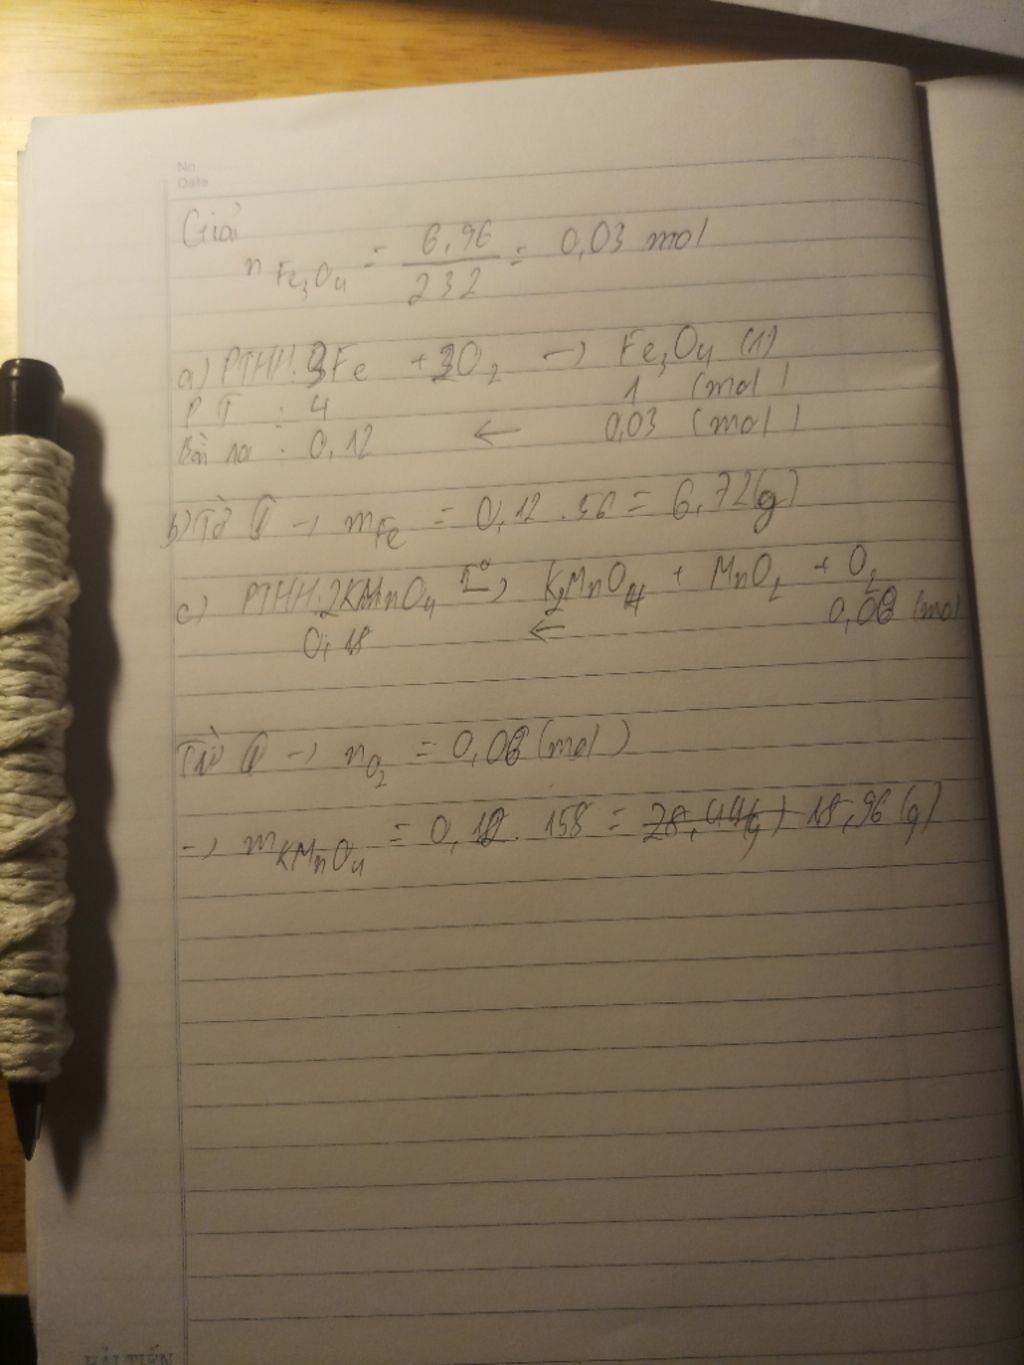 No.
Date
Giải
n Fe3O4 = 6,96 / 232 = 0,03 mol
a) PTHH: 3Fe + 2O2 → Fe3O4 (1)
PT : 4 1 (mol)
Bài ra : 0,12 ← 0,03 (mol)
b) Từ ① → mFe = 0,12 . 56 = 6,72(g)
c) PTHH: 2KMnO4 t° → K2MnO4 + MnO2 + O2
0,18 ← 0,06 (mol
Từ ① → nO2 = 0,06 (mol)
→ mKMnO4 = 0,12 . 158 = 28,44(g) 18,96 (g)
HẢI TIẾN